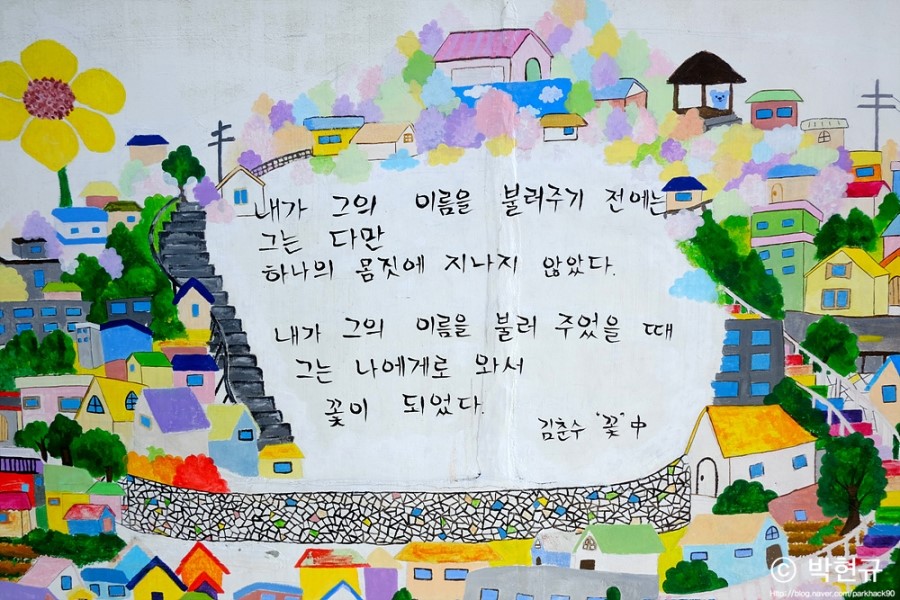 내가 그의 이름을 불러주기 전에는
그는 다만
하나의 몸짓에 지나지 않았다.
내가 그의 이름을 불러 주었을 때
그는 나에게로 와서
꽃이 되었다.
김춘수 "꽃" 中
© 박현규
http://blog.naver.com/parkhack90